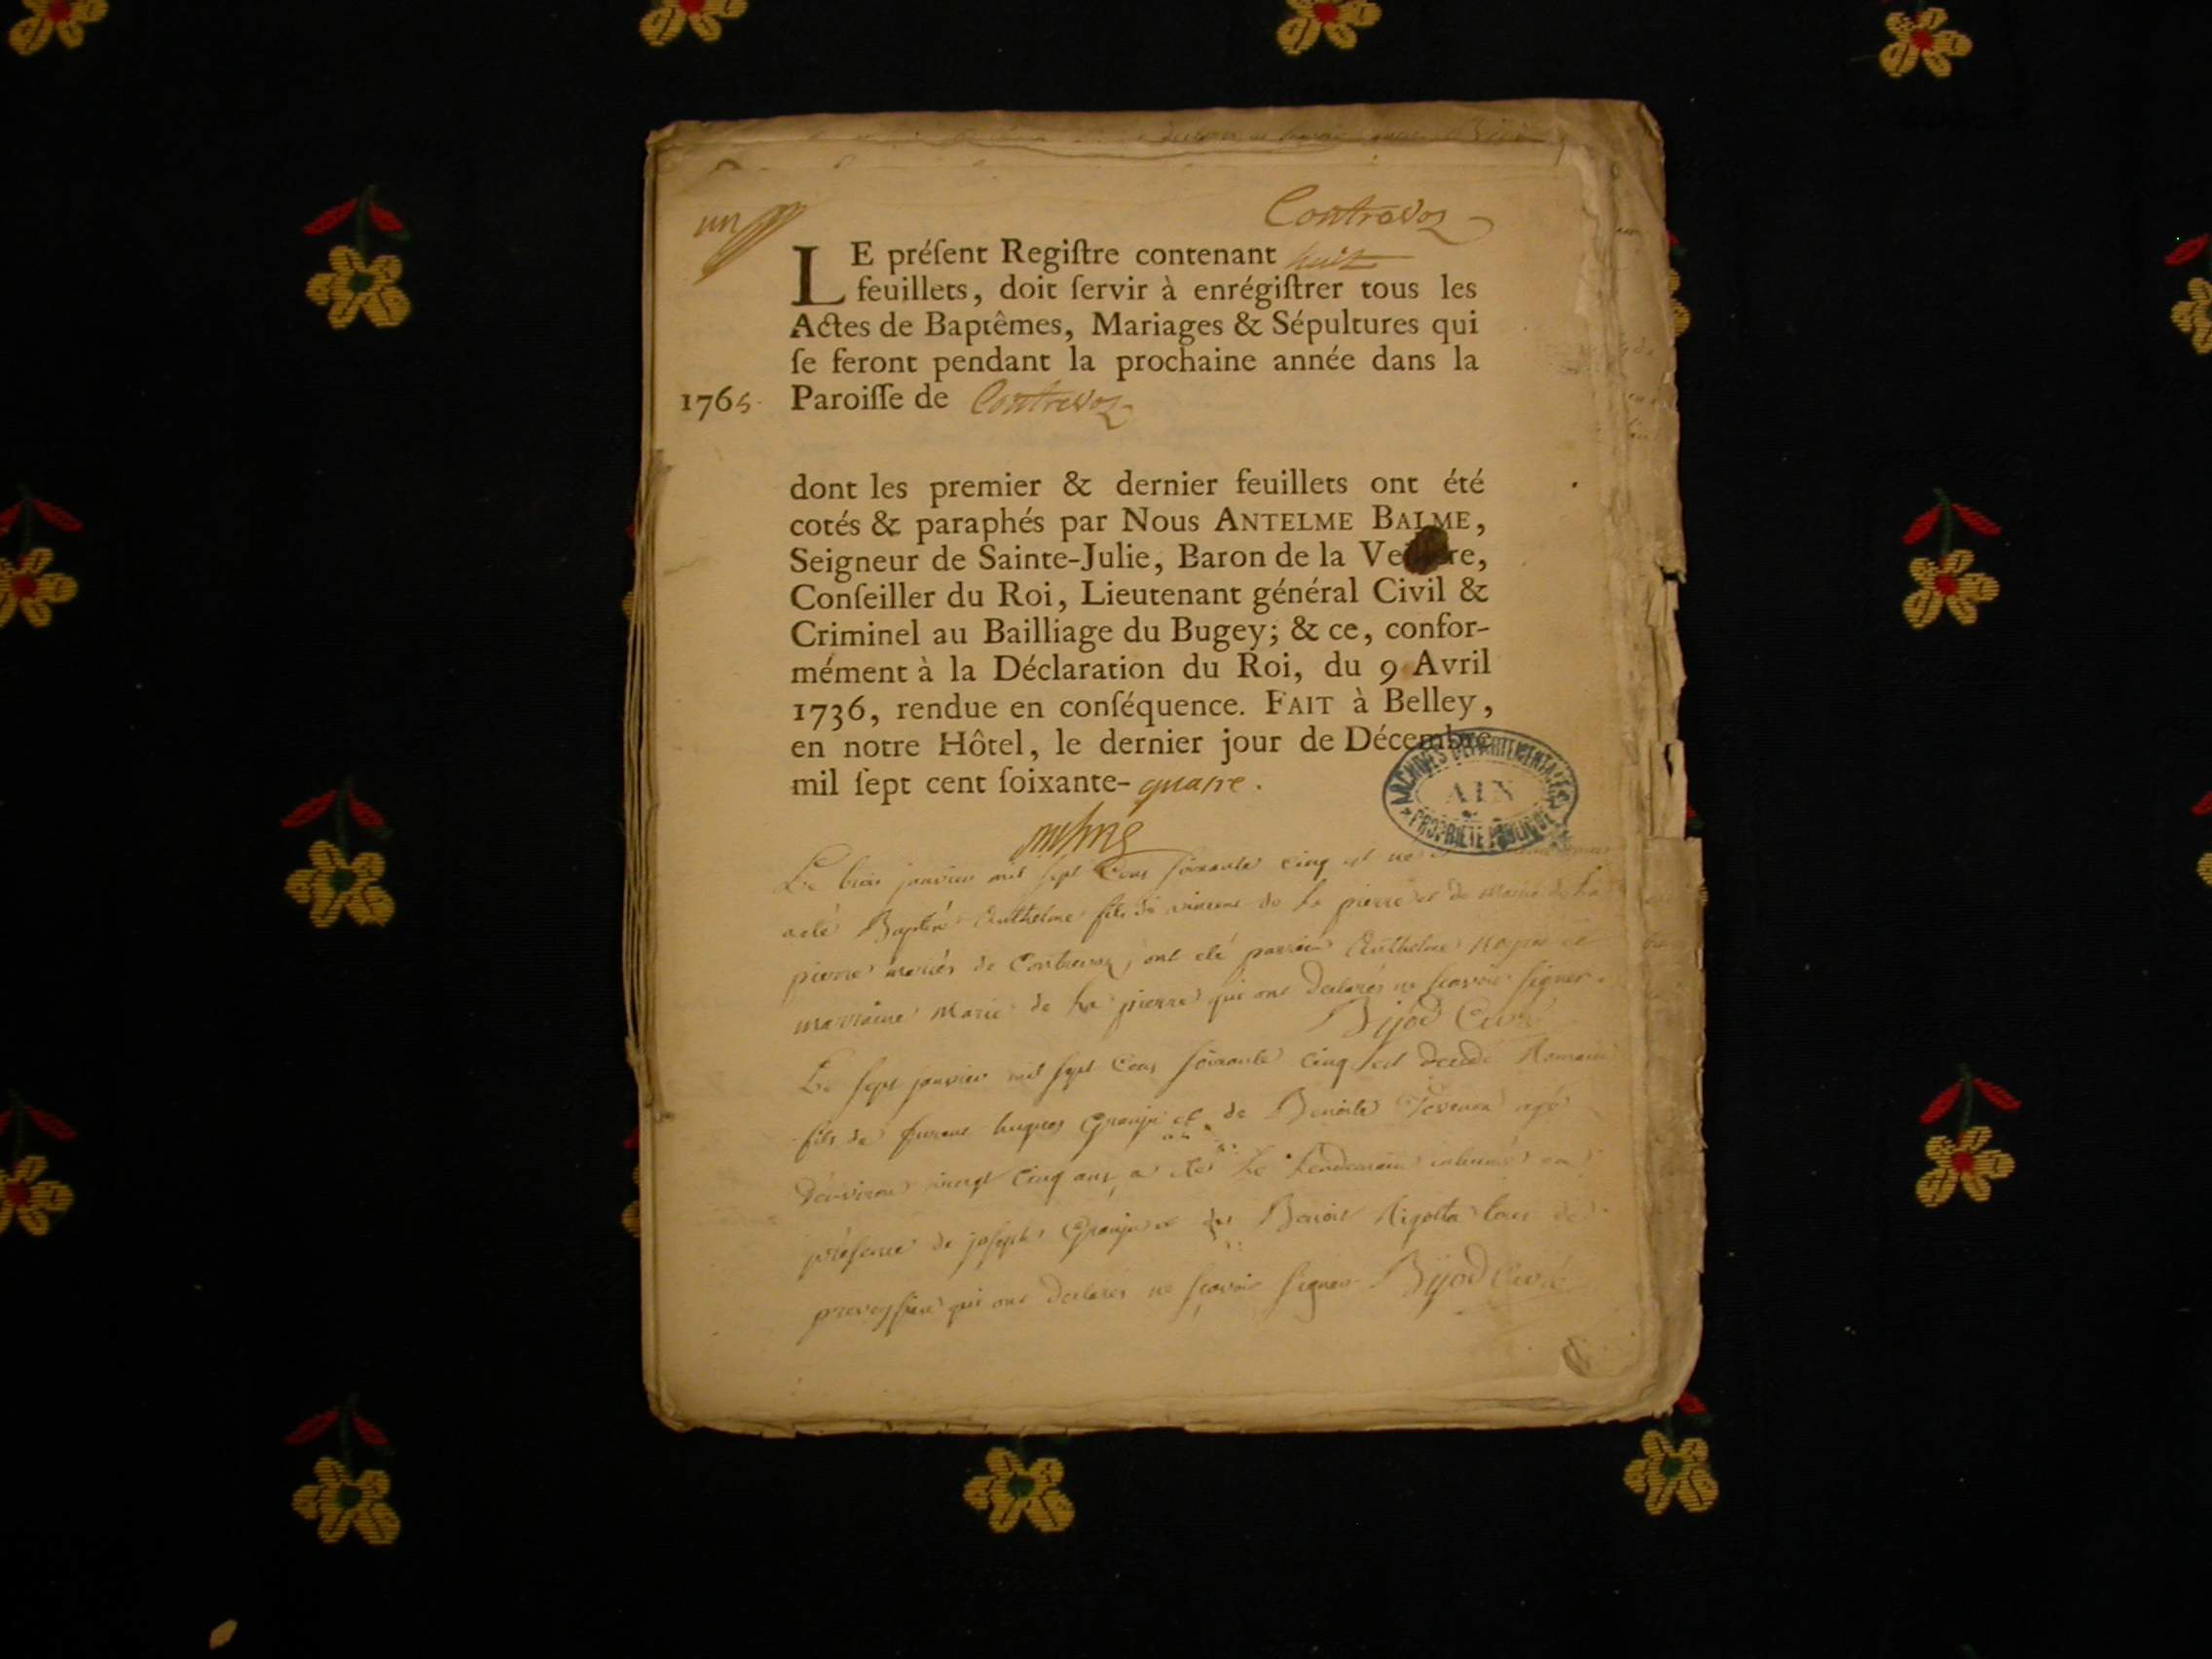 un
Contrevoz
LE préſent Regiſtre contenant huit
feuillets, doit ſervir à enrégiſtrer tous les
Actes de Baptêmes, Mariages & Sépultures qui
ſe feront pendant la prochaine année dans la
1765. Paroiſſe de Contrevoz
dont les premier & dernier feuillets ont été
cotés & paraphés par Nous ANTELME BALME,
Seigneur de Sainte-Julie, Baron de la
Conſeiller du Roi, Lieutenant général Civil &
Criminel au Bailliage du Bugey; & ce, confor-
mément à la Déclaration du Roi, du 9 Avril
1736, rendue en conſéquence. FAIT à Belley,
en notre Hôtel, le dernier jour de Décembre
mil ſept cent ſoixante-quatre.
ARCHIVES DÉPARTEMENTALES
AIN
PROPRIÉTÉ PUBLIQUE
Le trois janvier mil sept Cens soixante cinq est né
a eté Baptisé Anthelme fils de vincent de la pierre et de Marie de la
pierre mariés de Contrevoz, ont eté parrain Anthelme et
marraine Marie de la pierre qui ont declarés ne scavoir signer.
Bijod Curé
Le sept janvier mil sept Cens soixante cinq est decedé Romain
fils de hugues Grange et de Benoite agé
d'environ vingt cinq ans, a eté le lendemain inhumé en
présence de joseph Grange et Benoit tous de
qui ont declarés ne scavoir signer Bijod Curé